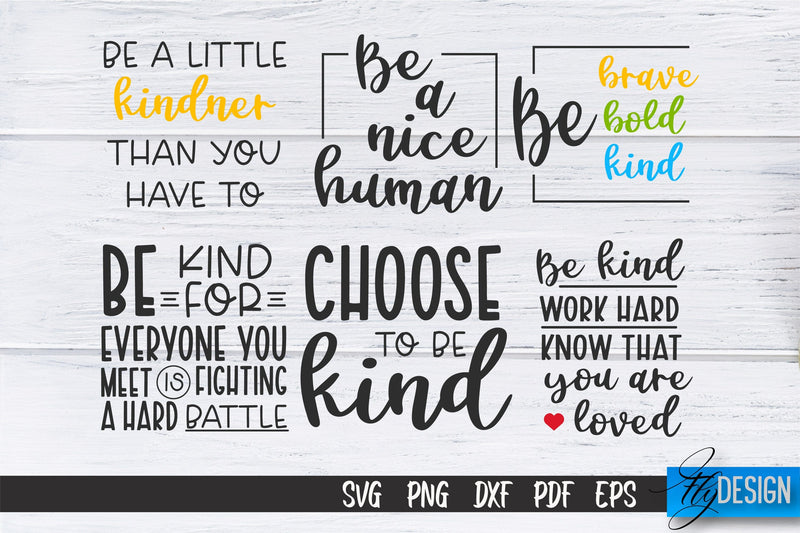 BE A LITTLE
kindner
THAN YOU
HAVE TO
Be
a
nice
human
Be
brave
bold
kind
BE KIND
FOR
EVERYONE YOU
MEET IS FIGHTING
A HARD BATTLE
CHOOSE
TO BE
kind
Be kind
WORK HARD
KNOW THAT
you are
loved
SVG PNG DXF PDF EPS
Fly DESIGN